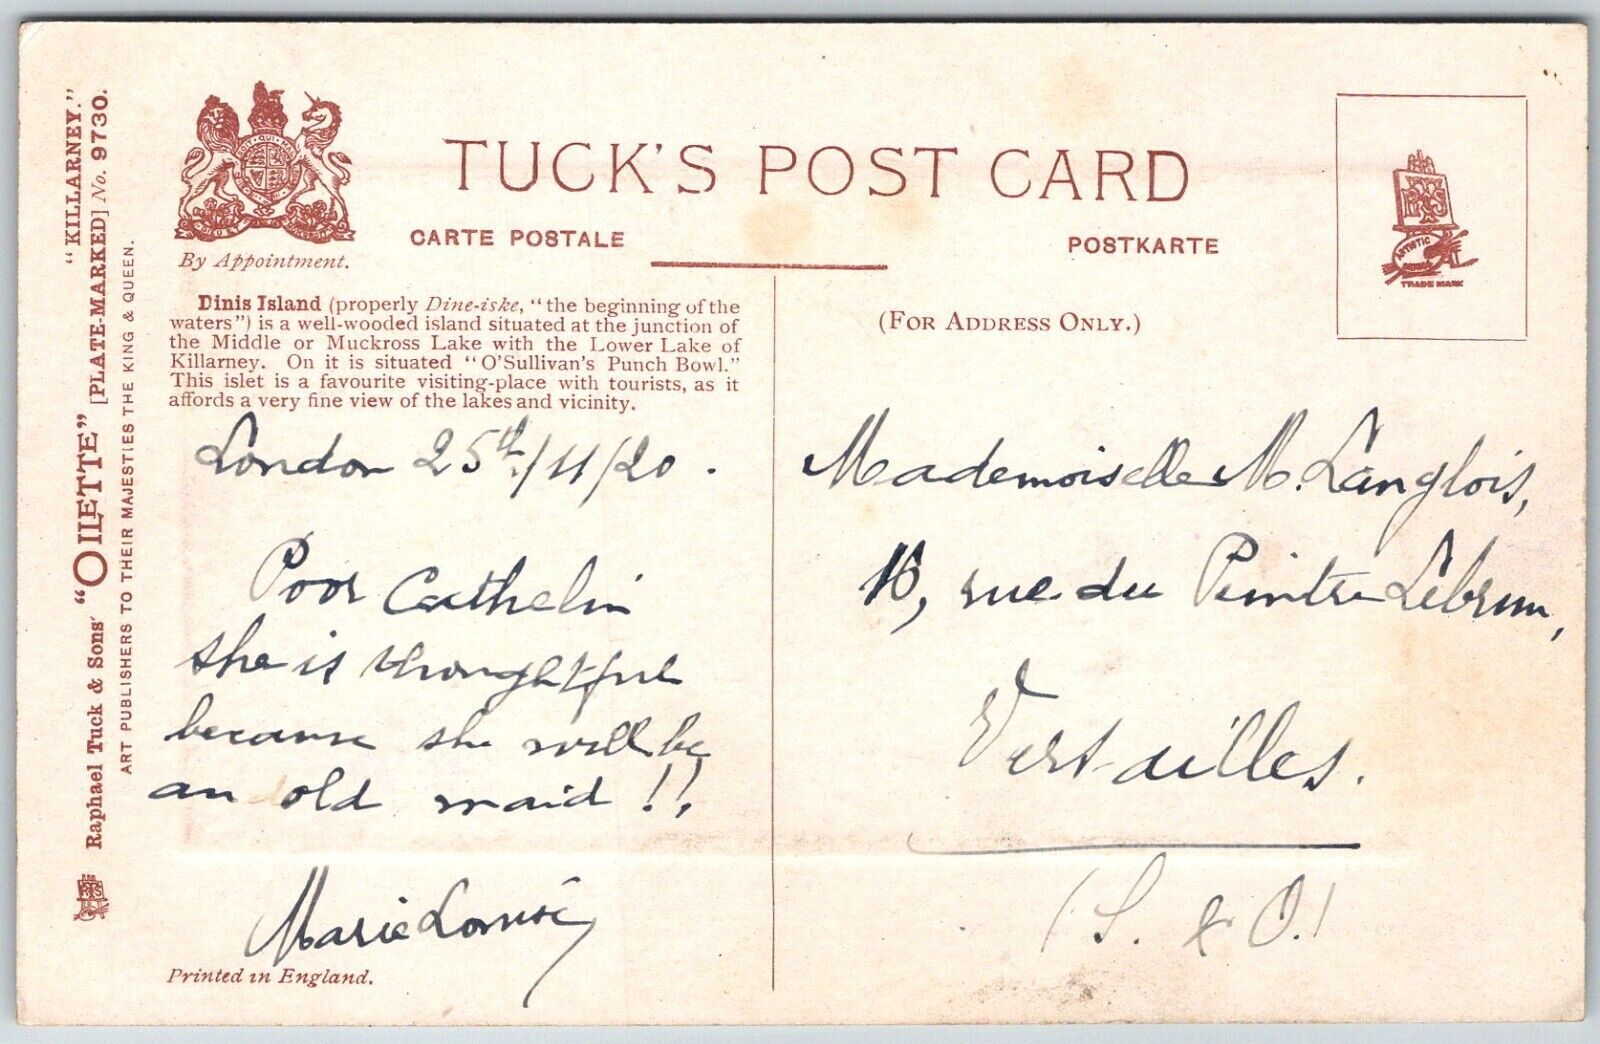 TUCK'S POST CARD
CARTE POSTALE
POSTKARTE
By Appointment.
(FOR ADDRESS ONLY.)
ARTISTIC
TRADE MARK
"KILLARNEY."
Raphael Tuck & Sons' "OILETTE" [PLATE-MARKED] No. 9730.
ART PUBLISHERS TO THEIR MAJESTIES THE KING & QUEEN.
Dinis Island (properly Dine-iske, "the beginning of the
waters") is a well-wooded island situated at the junction of
the Middle or Muckross Lake with the Lower Lake of
Killarney. On it is situated "O'Sullivan's Punch Bowl."
This islet is a favourite visiting-place with tourists, as it
affords a very fine view of the lakes and vicinity.
London 25th/11/20.
Poor Cathelin
she is thoughtful
because she will be
an old maid!!
Marie Louise
Printed in England.
Mademoiselle M. Langlois,
16, rue du Peintre Lebrun,
Versailles.
(S. & O.)